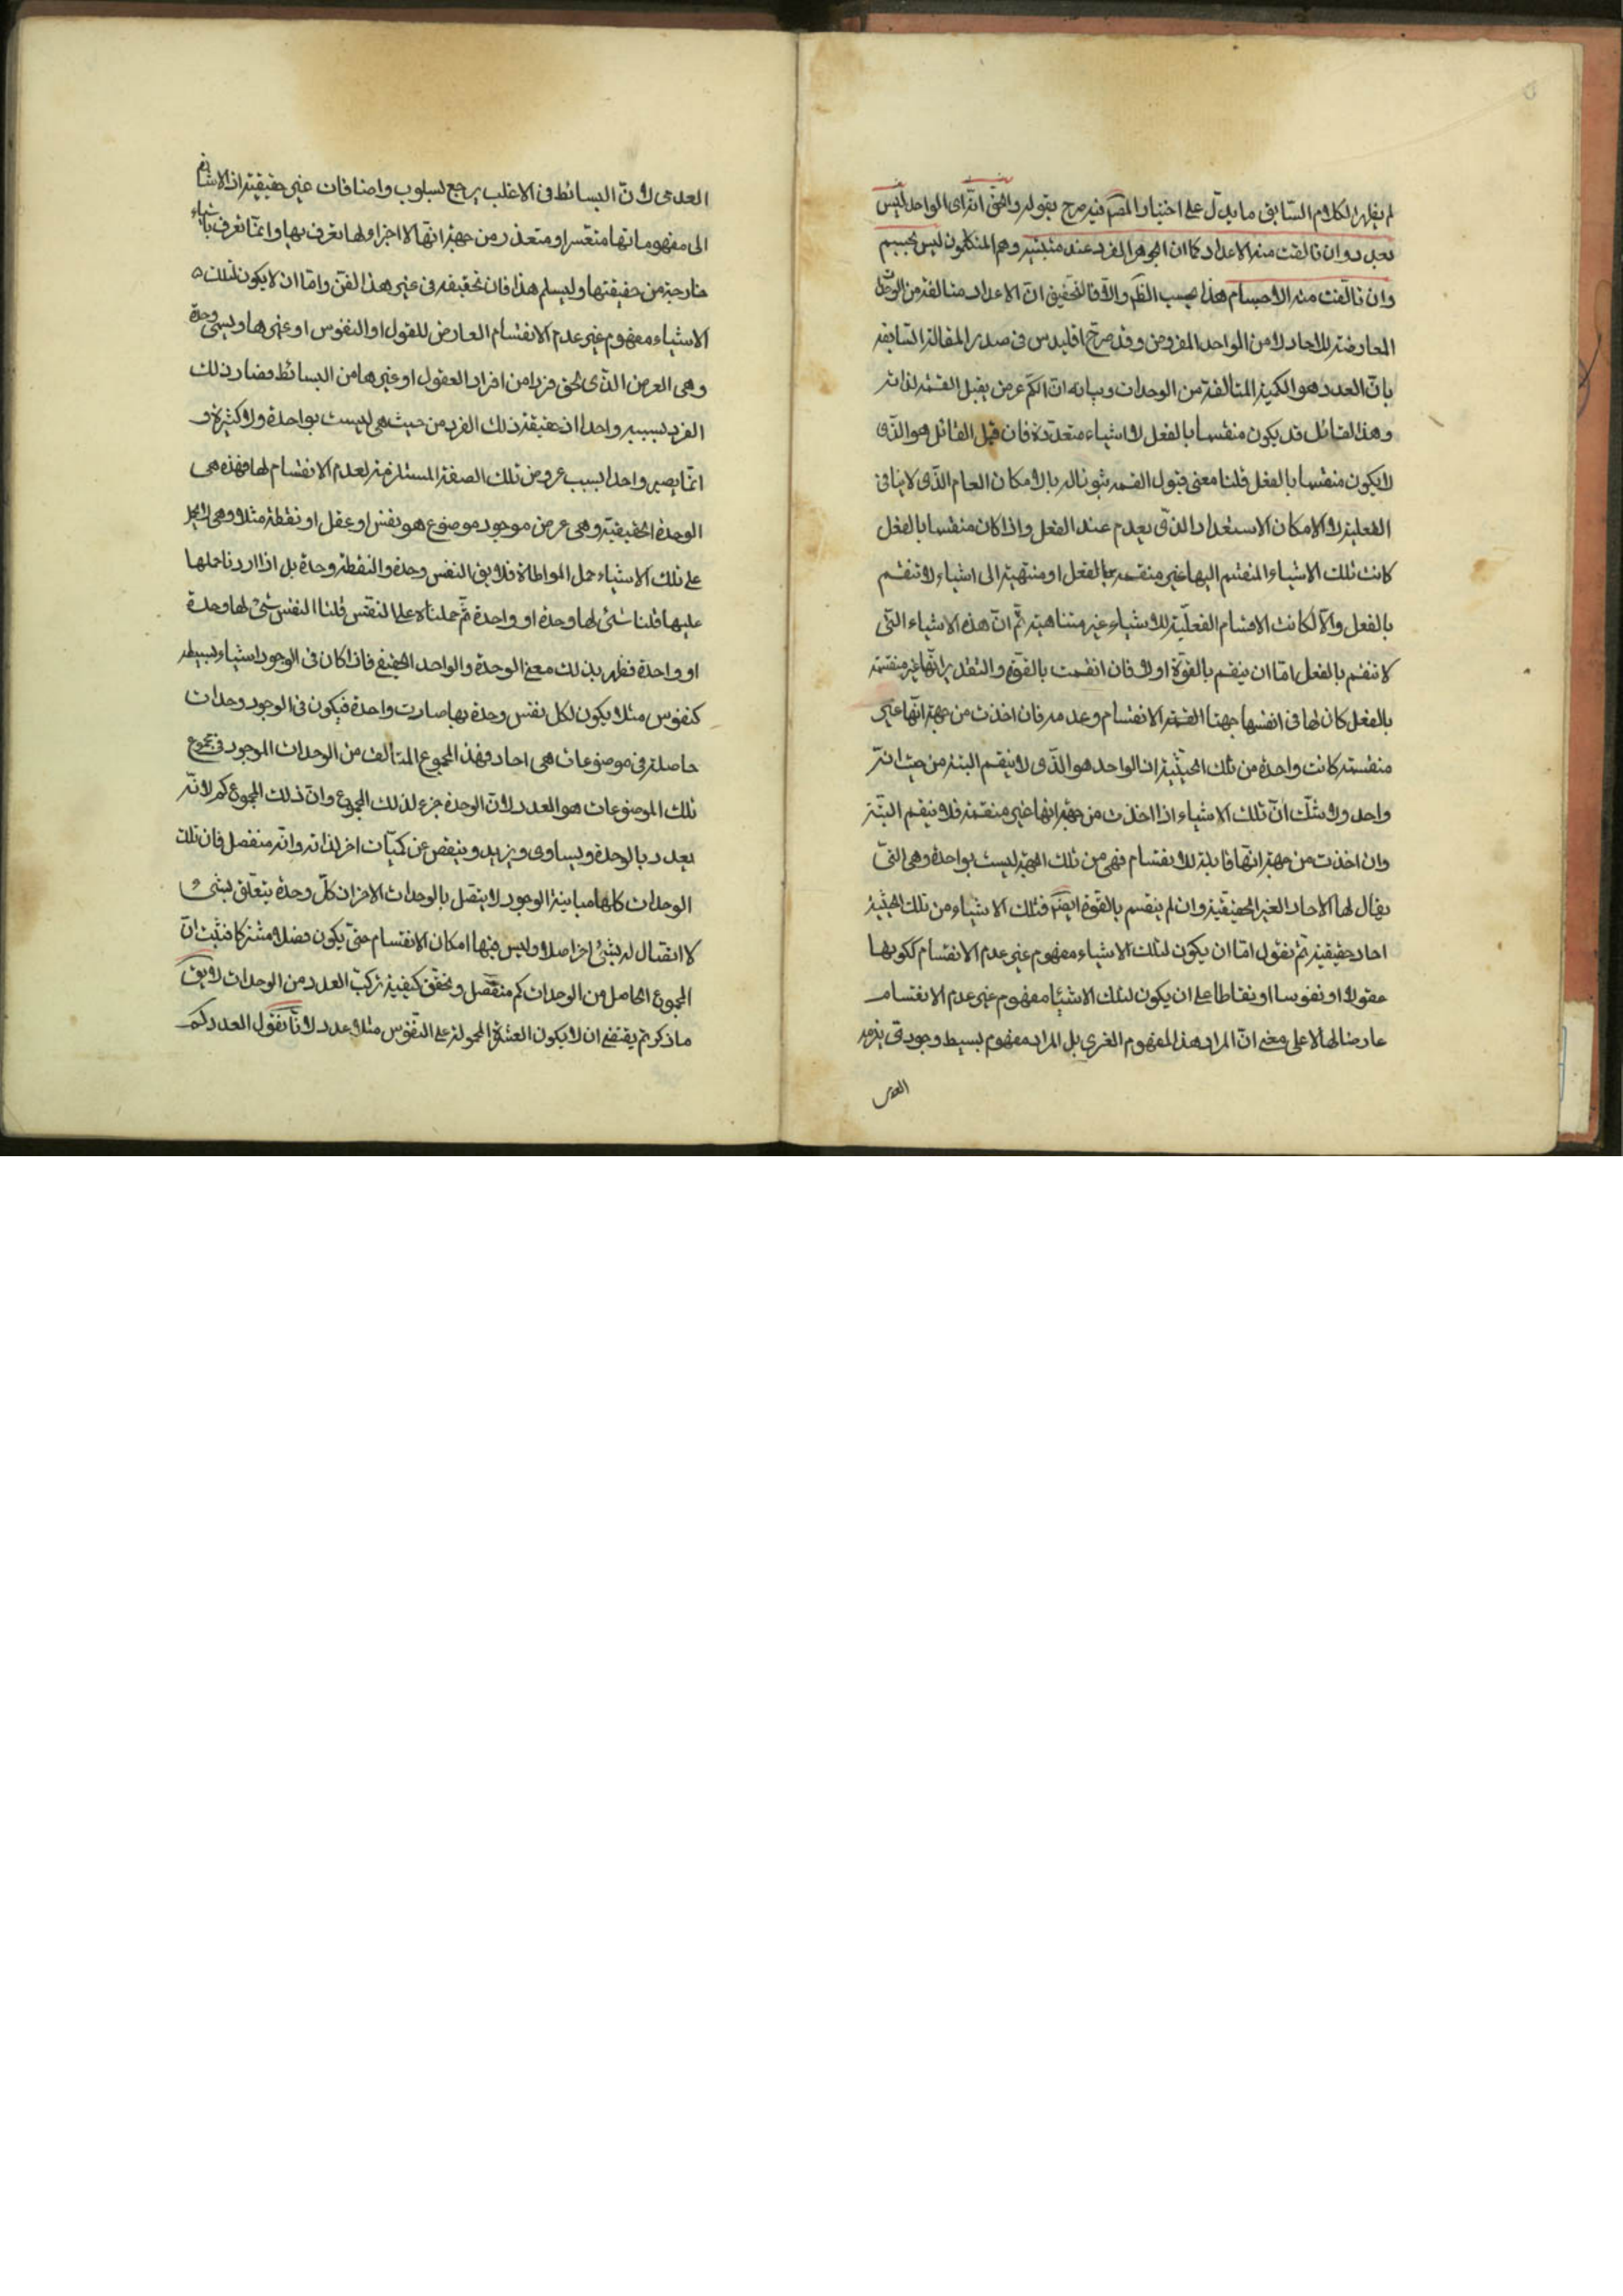 لم يظهر الكلام السابق ما يدل على اختيار والمصّ فيه صرح بقوله والحق انه اى الواحد ليس
بعدد وان تالفت منه الاعداد كما ان الجوهر الفرد عند مثبتيه وهم المتكلمون ليس بجسم
وان تالفت منه الاجسام هذا بحسب الظّ والّا فالتحقيق انّ الاعداد متالفة من الوحدات
العارضة للاحاد لا من الواحد المفروض وقد صرح اقليدس فى صدر المقالة السابعة
بانّ العدد هو الكمية المتالفة من الوحدات وبيانه انّ الكم عرض يقبل القسمة لذاته
وهذا القابل قد يكون منقسما بالفعل لاشياء متعددة فان قيل القابل هو الذّى
لا يكون منقسما بالفعل قلنا معنى قبول القسمة ثبوتها له بالامكان العام الذّى لا ينافى
الفعلية لا الامكان الاستعداد الذّى يعدم عند الفعل واذا كان منقسما بالفعل
كانت تلك الاشياء المنقسم اليها غير منقسمة بالفعل او منتهية الى اشياء لا تنقسم
بالفعل والّا لكانت الاقسام الفعلية للاشياء غير متناهية ثمّ انّ هذه الاشياء التّى
لا تنقسم بالفعل امّا ان ينقسم بالقوّة او لا فان انقسمت بالقوّة والتقدير انّها غير منقسمة
بالفعل كان لها فى انفسها جهتا القسمة الانقسام وعدمه فان اخذت من جهة انّها غير
منقسمة كانت واحدة من تلك الحيثية اذ الواحد هو الذّى لا ينقسم البتة من حيث انّه
واحد ولا شكّ انّ تلك الاشياء اذا اخذت من جهة انها غير منقسمة فلا ينقسم البتّة
وان اخذت من جهة انّها قابلة للانقسام فهى من تلك الجهة ليست بواحدة وهى التّى
يقال لها الاحاد الغير الحقيقية وان لم ينقسم بالقوة ايضّ فتلك الاشياء من تلك الحيثية
احاد حقيقية ثمّ نقول امّا ان يكون لتلك الاشياء مفهوم غير عدم الانقسام ككونها
عقولا او نفوسا او نقاطا على ان يكون لتلك الاشيا مفهوم غير عدم الانقسام
عارضا لها لا على معنى انّ المراد هذا المفهوم بل المراد مفهوم بسيط وجودى يلزمه
العدمى
العدمى لانّ البسائط فى الاغلب يرجع لسلوب واضافات غير حقيقية اذ الاشارة
الى مفهوماتها متعسر او متعذر من جهة انّها لا اجزاء لها تعرف بها وانّما تعرف باشياء
خارجة من حقيقتها وليسلم هذا فان تحقيقه فى غير هذا الفن وامّا ان لا يكون لتلك
الاشياء مفهوم غير عدم الانقسام العارض للعقول او النفوس او غيرها ويسمى وحدة
وهى العرض الذّى لحق فردا من افراد العقول او غيرها من البسائط فصار ذلك
الفرد بسببه واحدا اذ حقيقة ذلك الفرد من حيث هى ليست بواحدة ولا كثيرة و
انّما يصير واحدا بسبب عروض تلك الصفة المستلزمة لعدم الانقسام لها فهذه هى
الوحدة الحقيقية وهى عرض موجود موضوع هو نفس او عقل او نقطة مثلا وهى لا يحمل
على تلك الاشياء حمل المواطاة فلا يقال النفس وحدة والنقطة وحدة بل اذا اردنا حملها
عليها قلنا شئ لها وحدة او واحدة ثمّ حملناه على النفس قلنا النفس شئ لها وحدة
او واحدة فظهر بذلك معنى الوحدة والواحد الحقيقى فاذا كان فى الوجود اشياء بسيطة
كنفوس مثلا يكون لكل نفس وحدة بها صارت واحدة فيكون فى الوجود وحدات
حاصلة فى موضوعات هى احاد فهذا المجموع المتالف من الوحدات الموجود فى مجموع
تلك الموضوعات هو العدد لانّ الوحدة جزء لذلك المجموع وانّ ذلك المجموع كم لانّه
يعدد بالوحدة ويساوى ويزيد وينقص عن كميّات اخر لذاته وانّه منفصل فان تلك
الوحدات كلها مباينة الوجود لا يتصل بالوحدات الاخر اذ كلّ وحدة يتعلق بشئ و
لا اتصال له بشئ اخر اصلا وليس فيها امكان الانقسام حتى يكون فصلا مشتركا فثبت انّ
المجموع الحاصل من الوحدات كم منفصل وتحقق كيفية تركب العدد من الوحدات لا يق
ما ذكرتم يقتضى ان لا يكون العشرة المحمولة على النفوس مثلا عدد لانّا نقول العدد كم